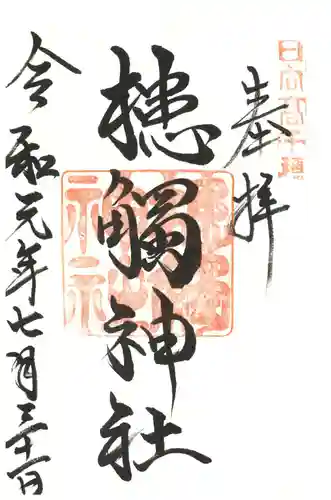 奉拝
日向高千穂
槵觸神社
令和元年七月三十一日